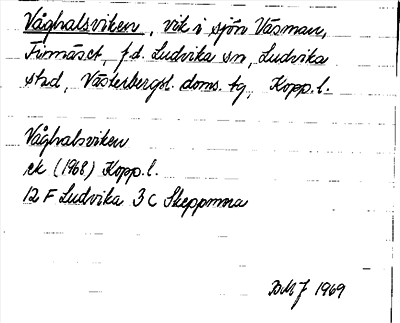 Våghalsviken, vik i sjön Väsman,
Finnäset, f.d. Ludvika sn, Ludvika
stad, Västerbergsl. doms. tg, Kopp. l.
Våghalsviken
ek (1968) Kopp. l.
12 F Ludvika 3 c Skeppmora
BMJ 1969